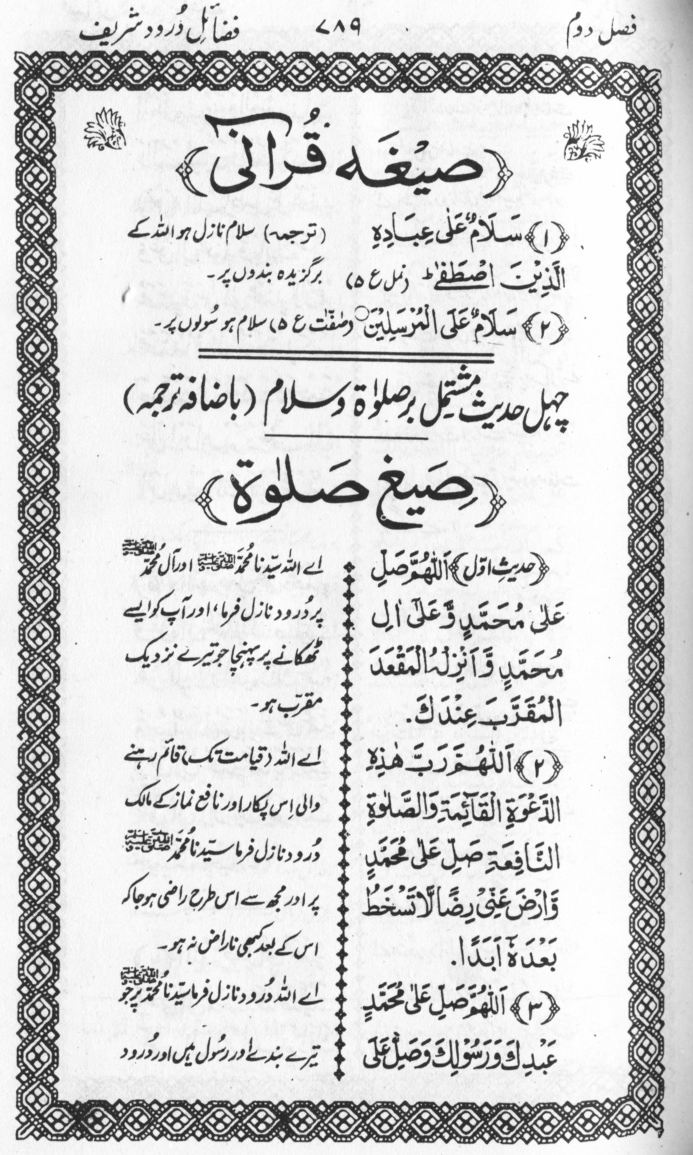 فصل دوم ۷۸۹ فضائلِ دُرود شریف
﴿صیغہ قُرآنی﴾
﴿۱﴾ سَلَامٌ عَلٰى عِبَادِهِ (ترجمہ) سلام نازل ہو اللہ کے
الَّذِيْنَ اصْطَفٰى ط (نمل ع ۵) برگزیدہ بندوں پر۔
﴿۲﴾ سَلَامٌ عَلَى الْمُرْسَلِيْنَ ○ (صٰفّٰت ع ۵) سلام ہو رسُولوں پر۔
چہل حدیث مشتمل بر صلوٰۃ و سلام (باضافہ ترجمہ)
﴿صِیَغ صَلوٰۃ﴾
﴿حدیثِ اوّل﴾ اَللّٰهُمَّ صَلِّ
عَلٰى مُحَمَّدٍ وَّعَلٰى اٰلِ
مُحَمَّدٍ وَّاَنْزِلْهُ الْمَقْعَدَ
الْمُقَرَّبَ عِنْدَكَ.
﴿۲﴾ اَللّٰهُمَّ رَبَّ هٰذِهِ
الدَّعْوَةِ الْقَآئِمَةِ وَالصَّلٰوةِ
النَّافِعَةِ صَلِّ عَلٰى مُحَمَّدٍ
وَّارْضَ عَنِّيْ رِضًا لَّا تَسْخَطُ
بَعْدَهٗ اَبَدًا.
﴿۳﴾ اَللّٰهُمَّ صَلِّ عَلٰى مُحَمَّدٍ
عَبْدِكَ وَرَسُوْلِكَ وَصَلِّ عَلَى
اے اللہ سیّدنا مُحمّد ﷺ اور آل مُحمّد ﷺ
پر درود نازل فرما، اور آپ کو ایسے
ٹھکانے پر پہنچا جو تیرے نزدیک
مقرّب ہو۔
اے اللہ (قیامت تک) قائم رہنے
والی اِس پکار اور نافع نماز کے مالک
دُرود نازل فرما سیّدنا مُحمّد ﷺ
پر اور مجھ سے اس طرح راضی ہو جا کہ
اس کے بعد کبھی ناراض نہ ہو۔
اے اللہ دُرود نازل فرما سیّدنا مُحمّد ﷺ پر جو
تیرے بندے اور رسُول ہیں اور دُرود